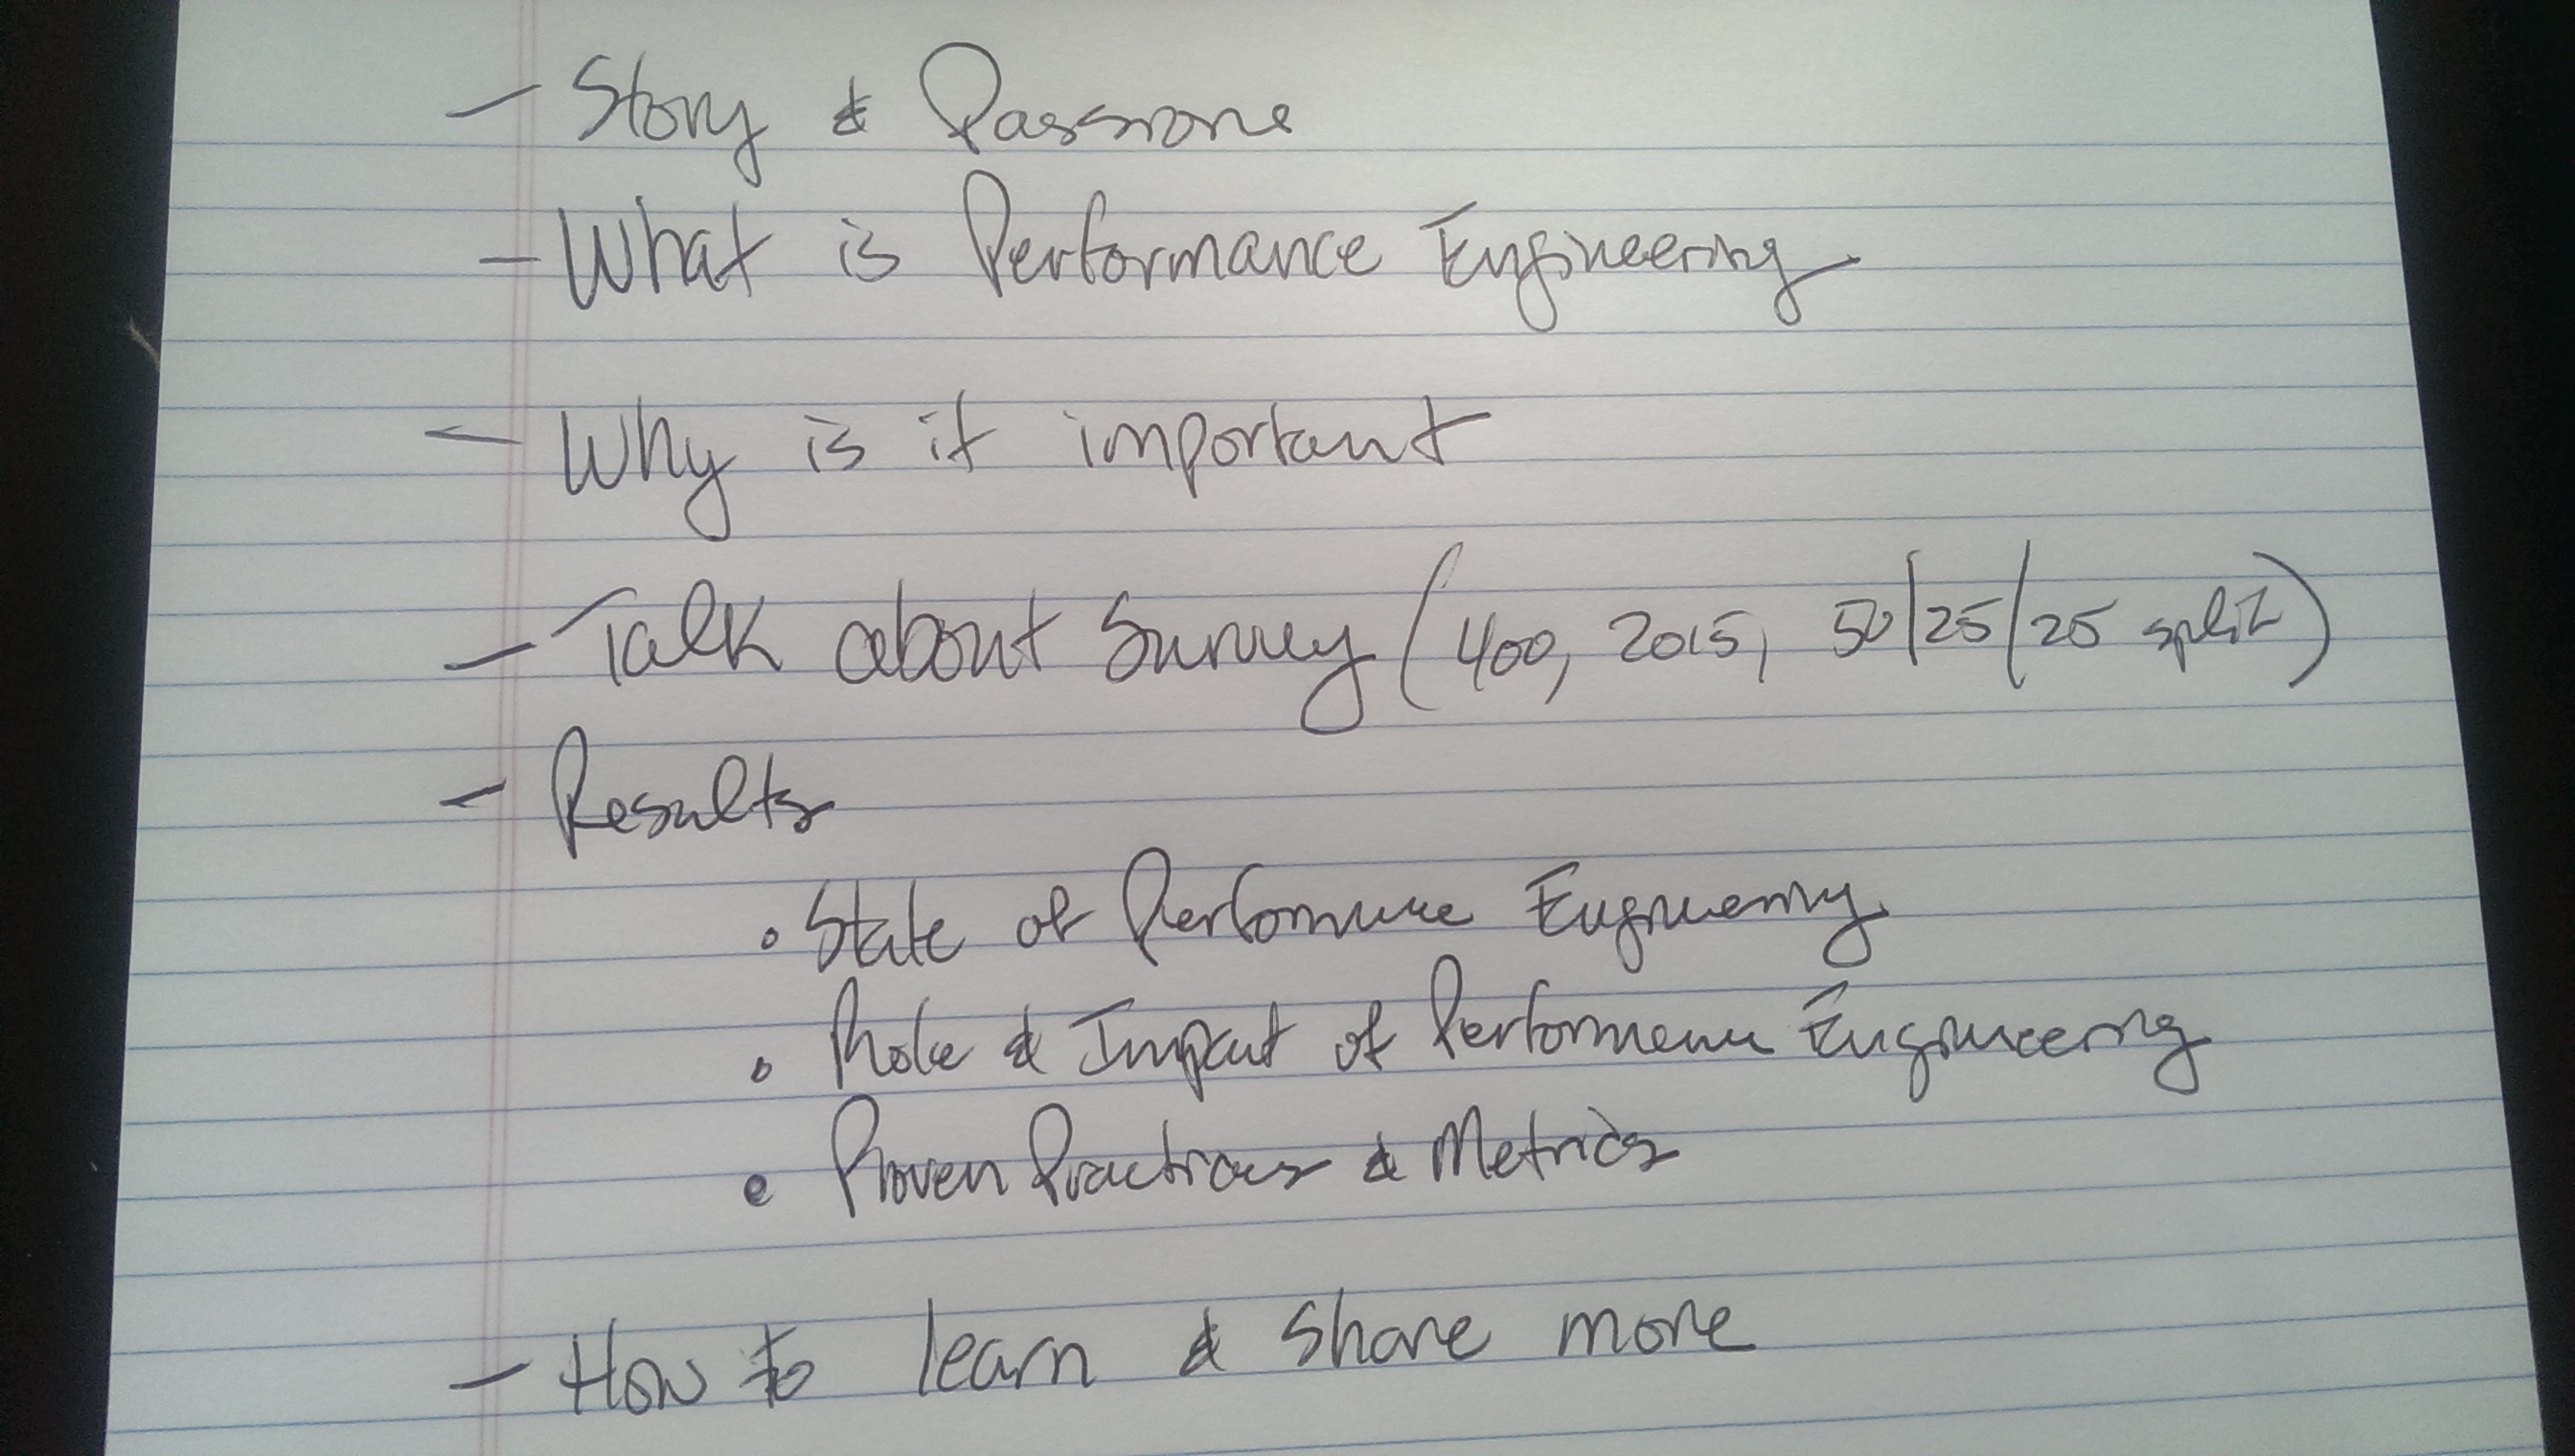 - Story & Passions
- What is Performance Engineering
- Why is it important
- Talk about Survey (400, 2015, 50/25/25 split)
- Results
• State of Performance Engineering
• Role & Impact of Performance Engineering
• Proven Practices & Metrics
- How to learn & share more